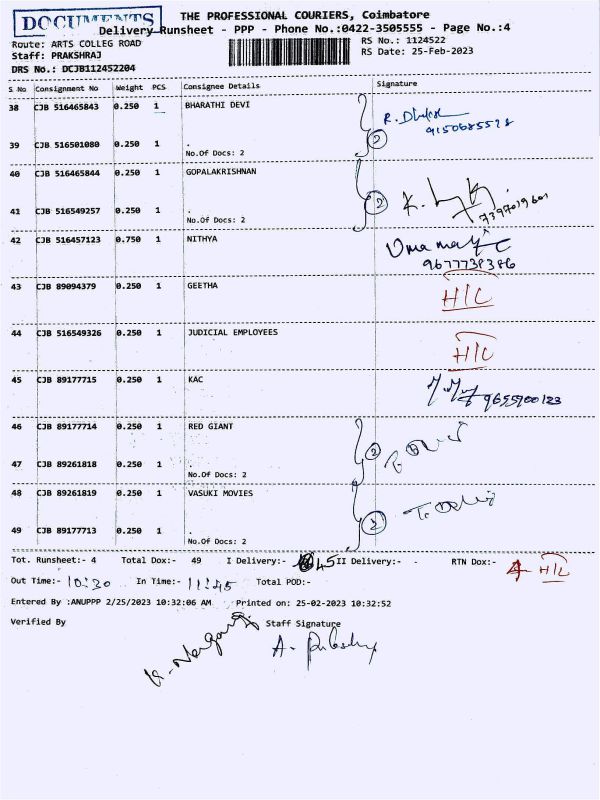 DOCUMENTS
THE PROFESSIONAL COURIERS, Coimbatore
Delivery Runsheet - PPP - Phone No.:0422-3505555 - Page No.:4
Route: ARTS COLLEG ROAD
RS No.: 1124522
Staff: PRAKSHRAJ
RS Date: 25-Feb-2023
DRS No.: DCJB112452204
S No Consignment No Weight PCS Consignee Details Signature
38 CJB 516465843 0.250 1 BHARATHI DEVI
R.
39 CJB 516501080 0.250 1 .
No.Of Docs: 2
2
40 CJB 516465844 0.250 1 GOPALAKRISHNAN
41 CJB 516549257 0.250 1 .
No.Of Docs: 2
2 K.
42 CJB 516457123 0.750 1 NITHYA
9677738386
43 CJB 89094379 0.250 1 GEETHA
H/C
44 CJB 516549326 0.250 1 JUDICIAL EMPLOYEES
H/C
45 CJB 89177715 0.250 1 KAC
9655900123
46 CJB 89177714 0.250 1 RED GIANT
47 CJB 89261818 0.250 1 .
No.Of Docs: 2
2
48 CJB 89261819 0.250 1 VASUKI MOVIES
49 CJB 89177713 0.250 1 .
No.Of Docs: 2
2
Tot. Runsheet:- 4 Total Dox:- 49 I Delivery:- 45 II Delivery:- - RTN Dox:- 4 - H/C
Out Time:- 10:30 In Time:- 11:45 Total POD:-
Entered By :ANUPPP 2/25/2023 10:32:06 AM Printed on: 25-02-2023 10:32:52
Verified By Staff Signature
A.